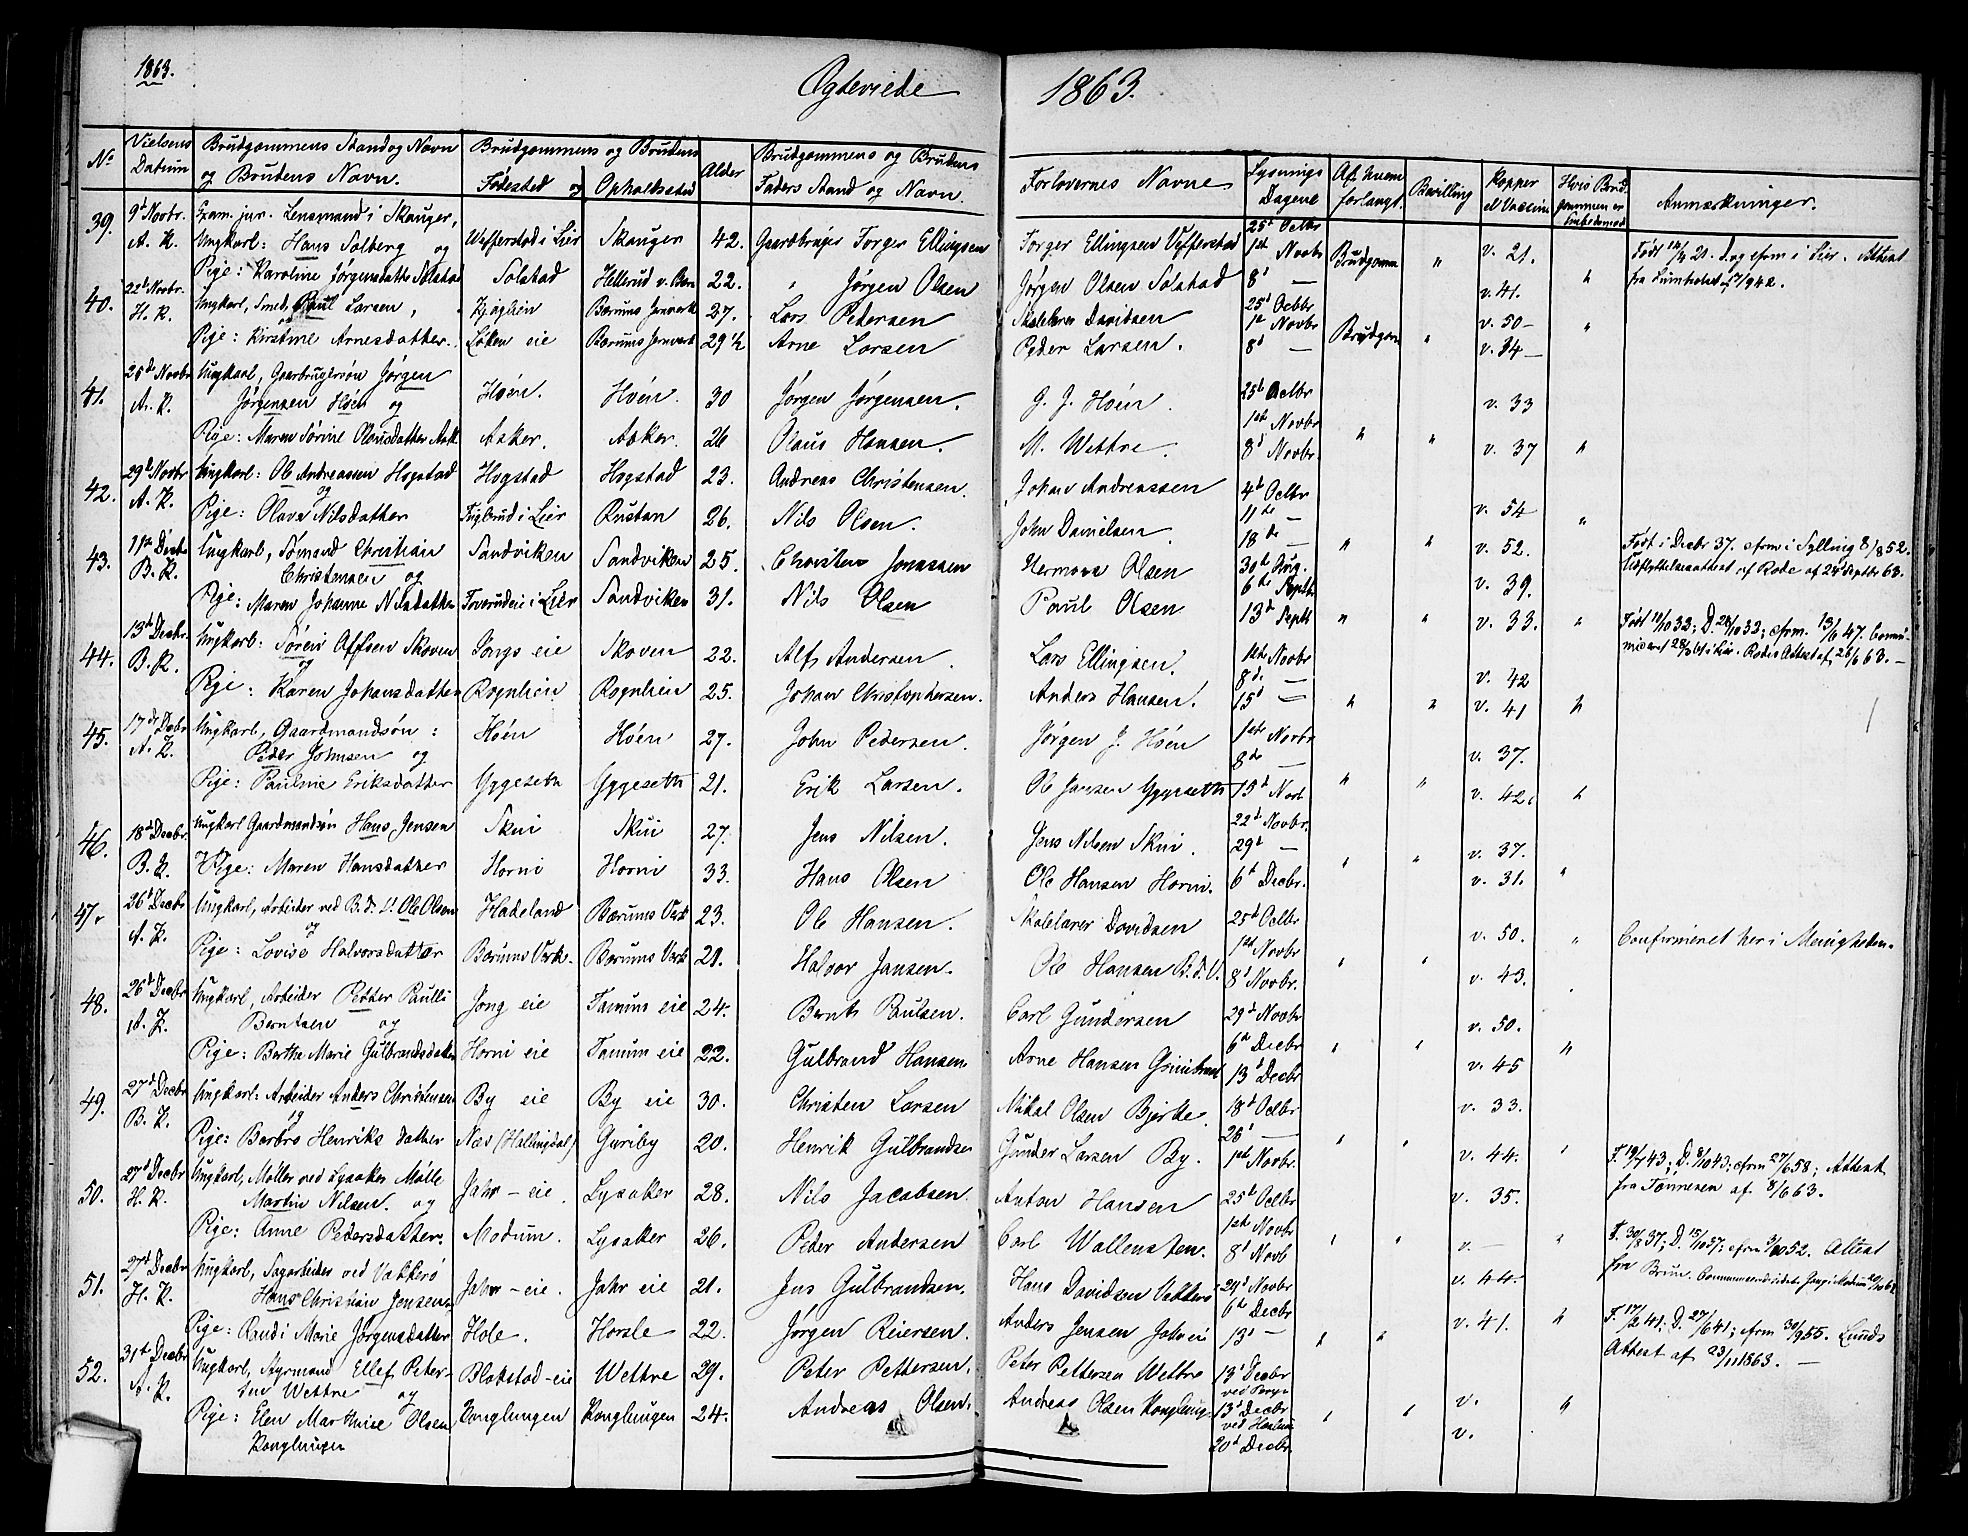 1863.
Egteviede 1863.
No | Vielsens Datum | Brudgommens Stand og Navn og Brudens Navn. | Brudgommens og Brudens Fødested og Opholdssted | Alder | Brudgommens og Brudens Faders Stand og Navn. | Forlovernes Navne | Lysnings Dagene | Af hvem forlangt. | Bevilling | Kopper el Vaccine | Hvis Brudgommen er Embedsmd | Anmærkninger.
39. 9d Novbr. Exam. jur. Lensmand i Skauger, 25d Octbr
A. K. Ungkarl: Hans Solberg og Wefferstad i Lier Skauger 42. Gaardbruger Torger Ellingsen Torger Ellingsen Vefferstad 1st Novbr Brudgomm " v. 21. Født 14/4 21. D. og cfrm i Lier. Attest
Pige: Karoline Jørgensdatter Solstad Solstad Hellerud v. Bær 22. " Jørgen Olsen Jørgen Olsen Solstad 8d — v. 41. " fra Lumholtz
40. 22d Novbr. Ungkarl, Smed, Paul Larsen, Kjaglien Bærums Jernverk 27. Lars Pedersen Skolelærer Davidsen 25d Octbr v. 50 — "
H. K. og 1st Novbr Brudgom "
Pige: Kirstine Arnesdatter. Løken eie Bærums Jernverk 29½ Arne Larsen Peder Larsen. 8d — v. 34 —
41. 25d Novbr Ungkarl, Gaarbrugersøn Jørgen
A. K. Jørgensen Høen og Høen. Høen. 30 Jørgen Jørgensen. G. J. Høen. 25d Octbr v. 33
1st Novbr
Pige: Maren Sørine Olausdatter Ask Asker. Asker. 26 Olaus Hansen. M. Wettre. 8d Novbr. " " v. 37 "
42. 29d Novbr Ungkarl: Ole Andreassen Hogstad Hogstad Hogstad 23. Andreas Christensen. Johan Andreassen 4d Octbr
A. K. og 11te — v. 54 "
Pige: Olava Nilsdatter Fuglerud i Lier Rustan 26. Nils Olsen. John Danielsen. 18de — " " v. 52.
43. 11te Decbr Ungkarl, Sømand Christian Sandviken Sandviken 25. Christen Jonassen Hermans Olsen 30d Aug. v. 39. Født i Decbr 37. cfrm i Sylling 8/8 52.
B. K. Christensen og 6te Septb Udflyttelsesattest af Rode af 24 Septbr 63.
Pige: Maren Johanne Nilsdatter Toverudeie i Lier Sandviken 31. Nils Olsen Paul Olsen 13d Septb " " v. 33. " Født 11/10 32; D. 28/10 32; cfrm. 13/6 47. Commu-
44. 13d Decbr. Ungkarl: Søren Alfsen Skoven Jongs eie Skoven 22. Alf Andersen. Lars Ellingsen. 1st Novbr nicered i Lier. Rodes Attest af 28/6 63. —
B. K. og 8d. — v. 42
Pige: Karen Johansdatter Rognlien Rognlien 25. Johan Christophersen. Anders Hansen. 15d — " " v. 41 "
45. 17de Decbr Ungkarl, Gaardmandsøn: Høen Høen 27. John Pedersen. Jørgen J. Høen 1ste Novbr
A. K. Peder Johnsen og 8de — v. 37.
Pige: Pauline Eriksdatter Yggeseth Yggeseth 21. Erik Larsen. Ole Jansen Yggeseth 15d Novb " " v. 42. "
46. 18d Decbr. Ungkarl Gaardmandsøn Hans Jensen Skui Skui 27. Jens Nilsen Jens Nilsen Skui. 22d Novbr.
B. K. 29d — v. 37.
Pige: Maren Hansdatter Horni Horni 33. Hans Olsen Ole Hansen Horni. 6d Decbr. " " v. 31. "
47. 26d Decbr Ungkarl, Arbeider ved B. J. V. Ole Olsen Hadeland Bærums Verk 23. Ole Hansen. Skolelærer Davidsen 25d Octbr
A. K. og 1st Novbr v. 50. " Confirmeret her i Menigheden.
Pige: Lovise Halvorsdatter Bærums Verk. Bærums Verk 21. Halvor Jansen. Ole Hansen B. J. V. 8d Novbr. " " v. 43.
48. 26d Decbr Ungkarl, Arbeider Petter Paulli Jong eie Tanum eie 24. Bernt Paulsen. Carl Gundersen 29d Novbr
A. K. Berntsen og v. 50.
Pige: Berthe Marie Gulbrandsdatter Horni eie Tanum eie 22. Gulbrand Hansen Arne Hansen 6d Decbr
13d Decbr " " v. 45 "
49. 27d Decbr Ungkarl: Arbeider Anders Christensen By eie By eie 30. Christen Larsen Mikal Olsen Bjerke. 18d Octbr v. 33.
B. K. og 26d —
Pige: Barbro Henriks datter Næs (Hallingdal) Guriby 20. Henrik Gulbrandsen Gunder Larsen By. 1st Novbr. " " v. 44. "
50. 27d Decbr Ungkarl, Møller ved Lysaker Mølle F. 19/7 43; D. 8/10 43; cfrm 27/6 58; Attest
H. K. Martin Nilsen. og Jahr — eie. Lysaker 28. Nils Jacobsen. Anton Hansen 25d Octbr v. 35. fra Tønnesen af 8/6 63.
1st Novbr
Pige: Anne Pedersdatter. Modum. Lysaker 26. Peder Andersen Carl Wallensten. 8d Novb " " v. — " F. 30/8 37; D. 15/10 37; cfrm 3/10 52. Attest
51. 27d Decbr Ungkarl, Sagarbeider ved Vækkerø Jahr — eie. Jahr eie 21. Jens Gulbrandsen. Hans Davidsen Vækkerø 29d Novbr v. 44. fra Brun.
H. K. Hans Christian Jensen 6te Decbr
Pige: Randi Marie Jørgensdatter Hole. Horsle 22. Jørgen Reiersen. Anders Jensen 13d — " " v. 41. " F. 17/2 41; D. 27/6 41; cfrm 30/9 55. Lunds
52. 31te Decbr Ungkarl, Styrmand Ellef Peter- Blakstad-eie Wettre 29. Peter Pettersen. Peter Pettersen Wettre 13d Decbr Attest af 23/11 1863. —
A. K. sen Wettre og
Pige: Elen Marthine Olsen Konglungen Konglungen 24. Andreas Olsen. Andreas Olsen Konglung. 13d Decbr " " v. "
Konglungen v.
20d Decbr